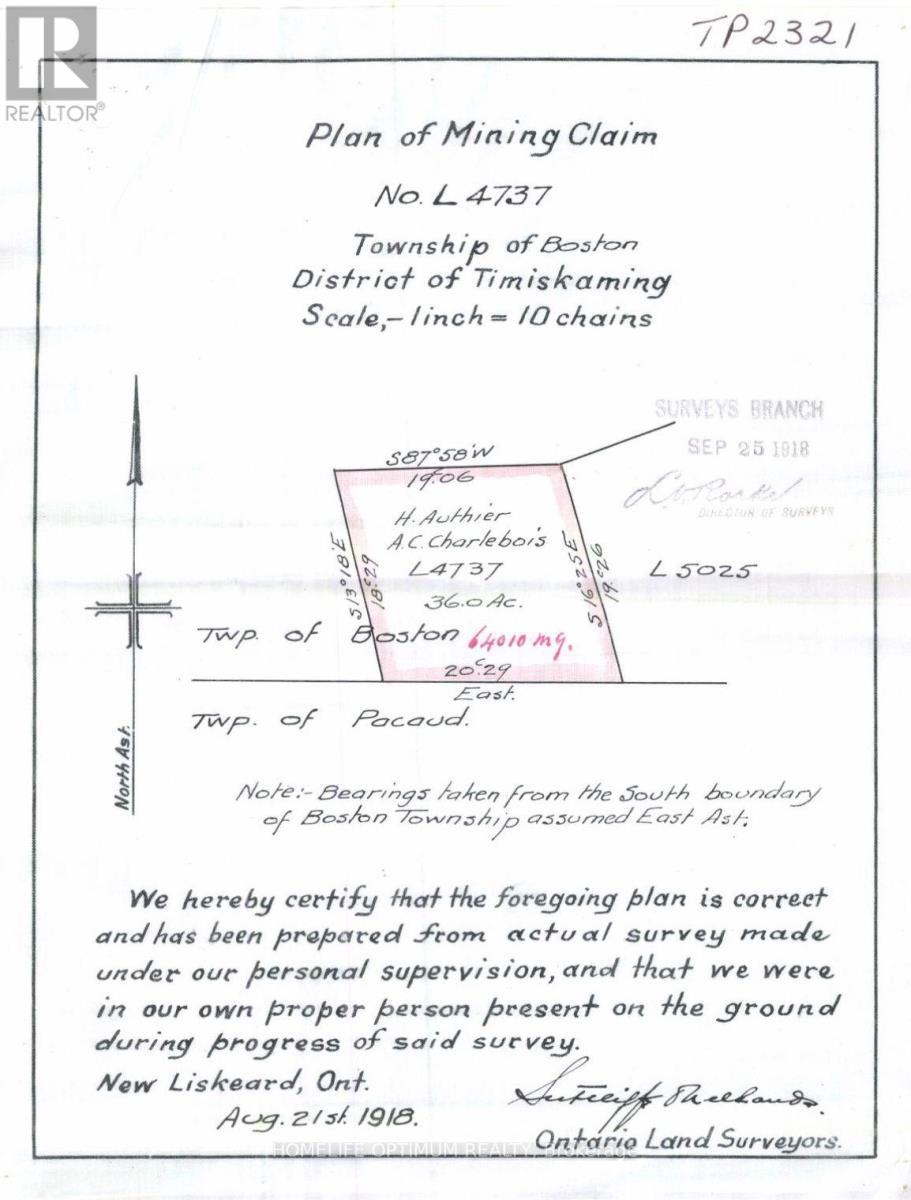 TP2321
REALTOR®
Plan of Mining Claim
No. L 4737
Township of Boston
District of Timiskaming
Scale,- 1 inch = 10 chains
SURVEYS BRANCH
SEP 25 1918
DIRECTOR OF SURVEYS
S87°58'W
19c06
H. Authier
A.C. Charlebois
L4737
36.0 Ac.
S13°18'E
18c29
S16°25'E
19c26
L5025
Twp. of Boston
64010 mg.
20c29
East.
Twp. of Pacaud.
North Ast.
Note:- Bearings taken from the South boundary
of Boston Township assumed East Ast.
We hereby certify that the foregoing plan is correct
and has been prepared from actual survey made
under our personal supervision, and that we were
in our own proper person present on the ground
during progress of said survey.
New Liskeard, Ont.
Aug. 21st. 1918.
Ontario Land Surveyors.
HOMELIFE OPTIMUM REALTY, Brokerage